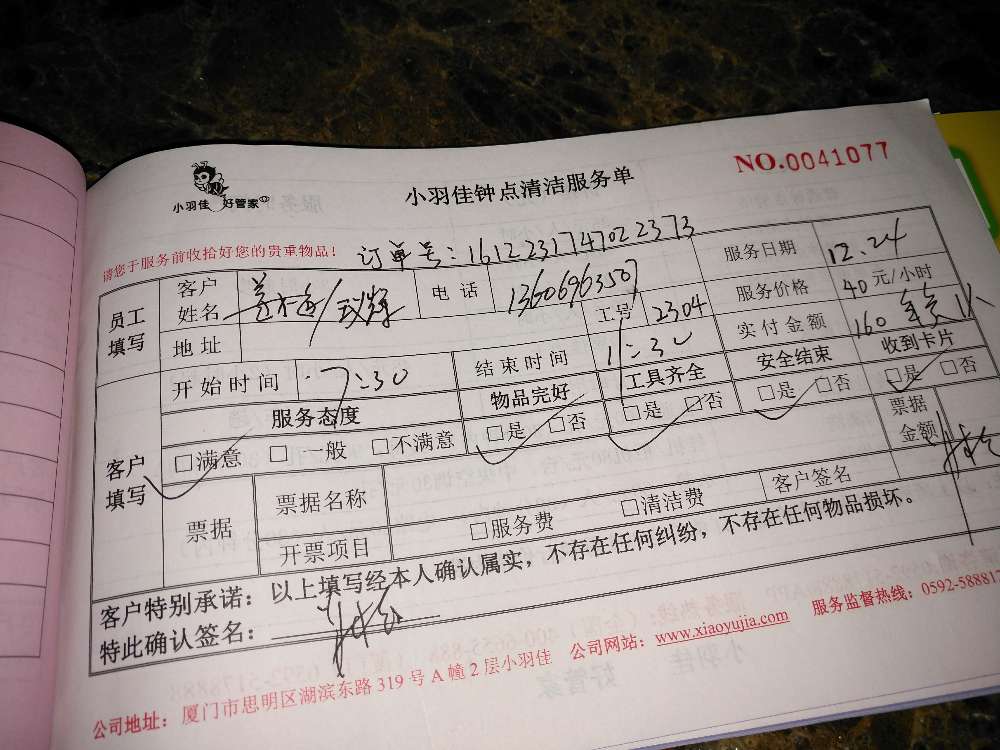 小羽佳 好管家
小羽佳钟点清洁服务单
NO.0041077
请您于服务前收拾好您的贵重物品!
订单号:161223174702 2373
员工填写
客户姓名
电话 13606963507
服务日期 12.24
地址
工号 2304
服务价格 40元/小时
客户填写
开始时间 7:30
结束时间 11:30
实付金额 160
服务态度 物品完好 工具齐全 安全结束 收到卡片
□满意 □一般 □不满意 □是 □否 □是 □否 □是 □否 □是 □否
票据
票据名称
票据金额
开票项目 □服务费 □清洁费
客户签名
客户特别承诺:以上填写经本人确认属实,不存在任何纠纷,不存在任何物品损坏。
特此确认签名:
公司地址:厦门市思明区湖滨东路319号A幢2层小羽佳 公司网站:www.xiaoyujia.com 服务监督热线:0592-588817